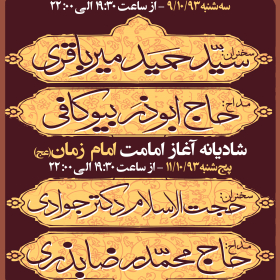 سه شنبه ۹/۱۰/۹۳ - از ساعت ۱۹:۳۰ الی ۲۲:۰۰
سخنران:
سید حمید میرباقری
مداح:
حاج ابوذر بیوکافی
شادیانه آغاز امامت امام زمان (عج)
پنج شنبه ۱۱/۱۰/۹۳ - از ساعت ۱۹:۳۰ الی ۲۲:۰۰
سخنران:
حجت الاسلام دکتر جوادی
مداح:
حاج محمدرضا بذری